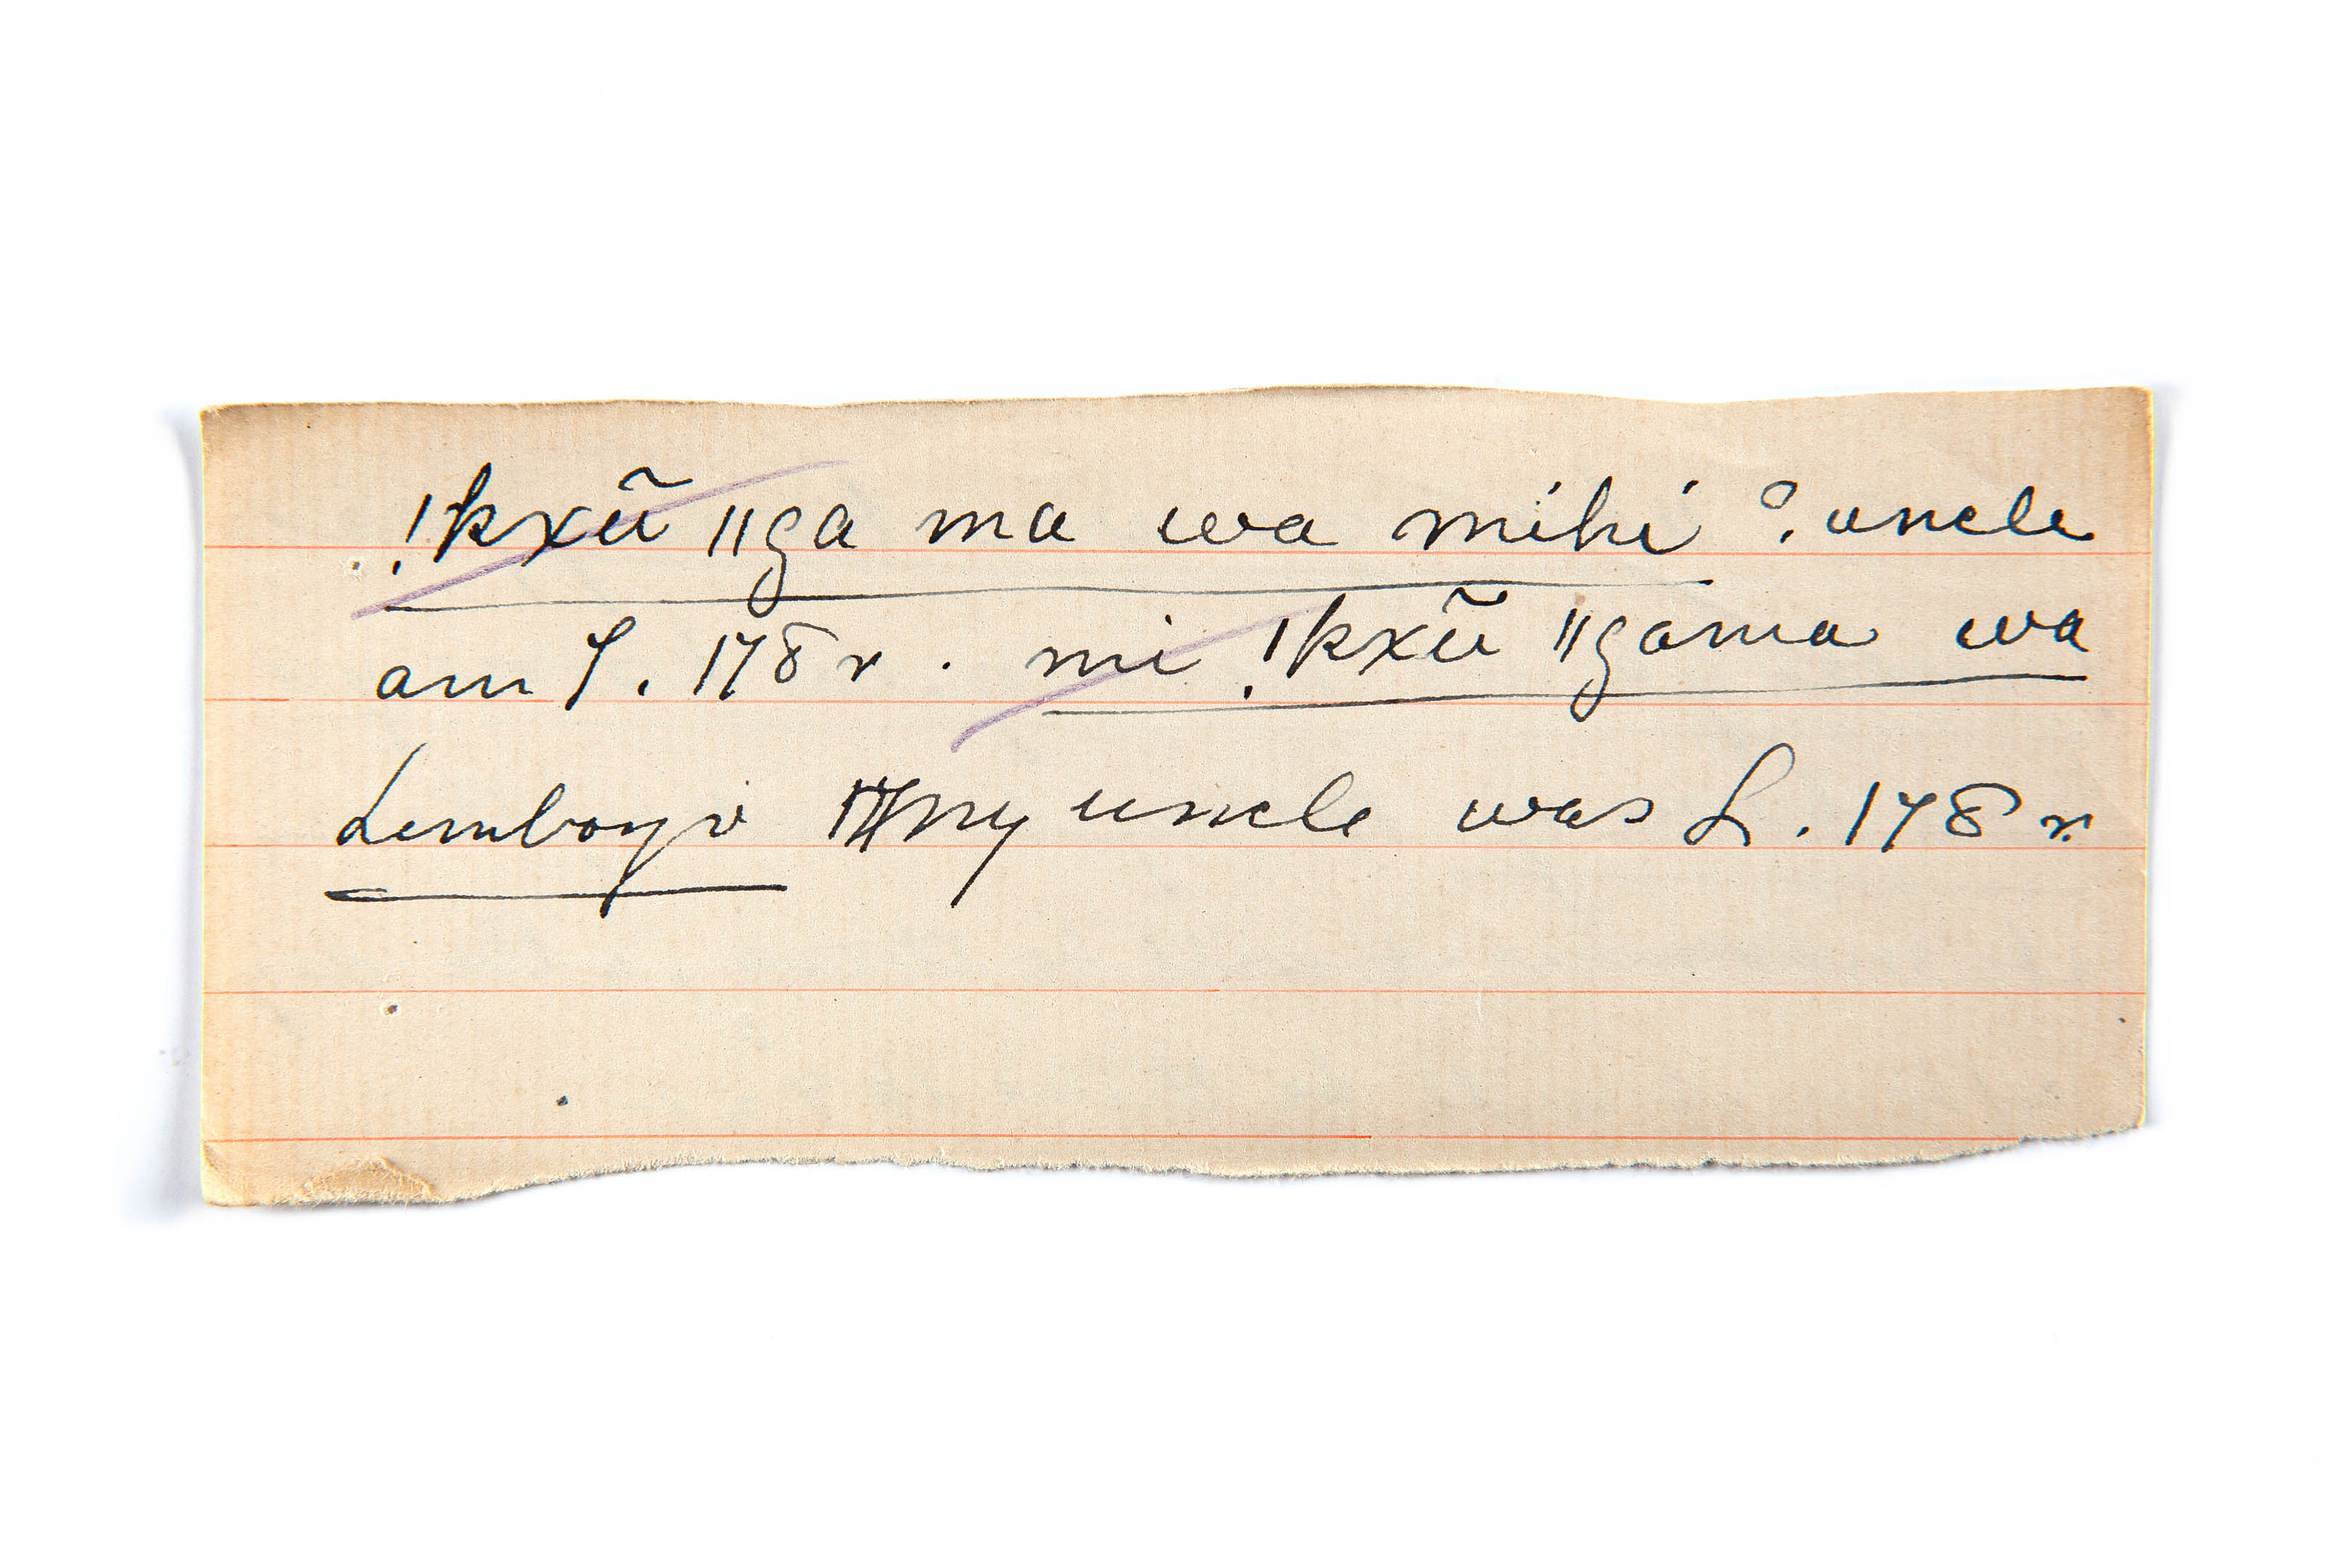 !kxũ ǁga ma wa mihi ? uncle
am I. 178 r . mi !kxũ ǁgama wa
Lemboyi my uncle was L. 178 r